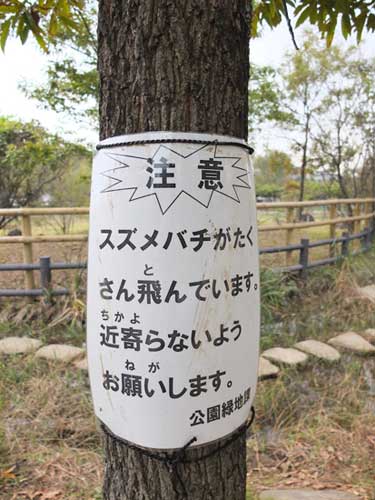 注意
スズメバチがたく
さん飛んでいます。
近寄らないよう
お願いします。
公園緑地課
と
ちかよ
ねが